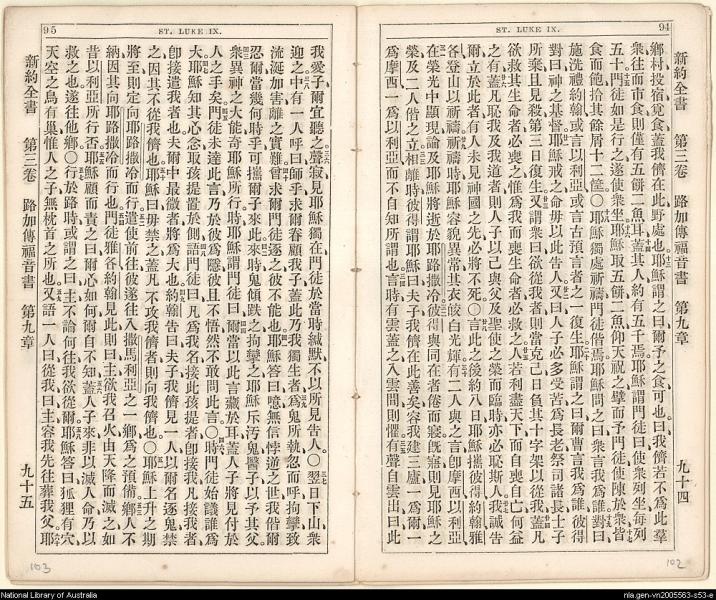 94
ST. LUKE IX.
新約全書 第三卷 路加傳福音書 第九章 九十四
鄉村投宿覓食蓋我儕在此野處也耶穌謂之曰爾予之食可也曰我儕若不爲此羣
衆往而市食則僅有五餠二魚耳蓋其人約有五千焉耶穌謂門徒曰使衆列坐每列
五十門徒如是行之遂使衆坐耶穌取五餠二魚仰天祝之擘而予門徒使陳於衆皆
食而飽拾其餘屑十二筐○耶穌獨處祈禱門徒偕焉耶穌問之曰衆言我爲誰對曰
施洗禮約翰或言以利亞或言古預言者之一復生耶穌謂之曰爾曹言我爲誰彼得
對曰神之基督耶穌戒之命毋以此告人又曰人子必多受苦爲長老祭司諸長士子
所棄且見殺第三日復生又謂衆曰欲從我者則當克己日負其十字架以從我蓋凡
欲救其生命者必喪之惟爲我而喪生命者必救之人若利盡天下而自喪自亡何益
之有蓋凡恥我及我道者則人子以己與父及聖使之榮而臨時亦必恥斯人我誠告
爾立於此者有人未見神國之先必將不死○言此之後約八日耶穌攜彼得約翰雅
各登山以祈禱祈禱時耶穌容貌異常其衣皎白光輝有二人與之言卽摩西以利亞
在榮光中顯現論及耶穌將逝於耶路撒冷彼得與同在者倦而寢旣寤則見耶穌之
榮及二人偕之立相離時彼得謂耶穌曰夫子我儕在此善矣容我建三廬一爲爾一
爲摩西一爲以利亞而不自知所謂也言時有雲蓋之入雲間則懼有聲自雲出曰此
102
95
ST. LUKE IX.
我愛子爾宜聽之聲寂見耶穌獨在門徒於當時緘默不以所見告人○翌日下山衆
迎之中有一人呼曰師乎求爾眷顧我子蓋此乃我獨生者爲鬼所執忽而呼拘攣致
流涎加害離之實難曾求爾門徒逐之彼不能也耶穌答曰噫無信悖逆之世我偕爾
忍爾當幾何時乎可攜爾子來此來時鬼傾跌之拘攣之耶穌斥汚鬼醫子以予其父
衆異神之大能奇耶穌所行時耶穌謂門徒曰爾當以此言藏於耳蓋人子將見付於
人之手矣門徒未達此言乃於彼爲隱彼且不悟然不敢問此言○時門徒始議誰爲
大耶穌知其心念取孩提置於側語門徒曰凡爲我名接此孩提者卽接我凡接我者
卽接遣我者也夫爾中最微者將爲大也約翰告曰夫子我儕見一人以爾名逐鬼禁
之因其不從我儕也耶穌曰毋禁之蓋凡不攻我儕者則向我儕也○耶穌上升之期
將至則定向耶路撒冷而行遣使前往彼遂往入撒馬利亞之一鄉爲之預備鄉人不
納因其向耶路撒冷而行也門徒雅各約翰見此則曰主欲我召火由天降而滅之如
昔以利亞所行否耶穌顧而責之曰爾心如何爾自不知蓋人子來非以滅人命乃以
救之也遂往他鄉○行於路時或謂之曰主不論何往我欲從爾耶穌答曰狐狸有穴
天空之鳥有巢惟人之子無枕首之所也又語一人曰從我曰主容我先往葬我父耶
新約全書 第三卷 路加傳福音書 第九章 九十五
103
National Library of Australia
nla.gen-vn2005563-s53-e